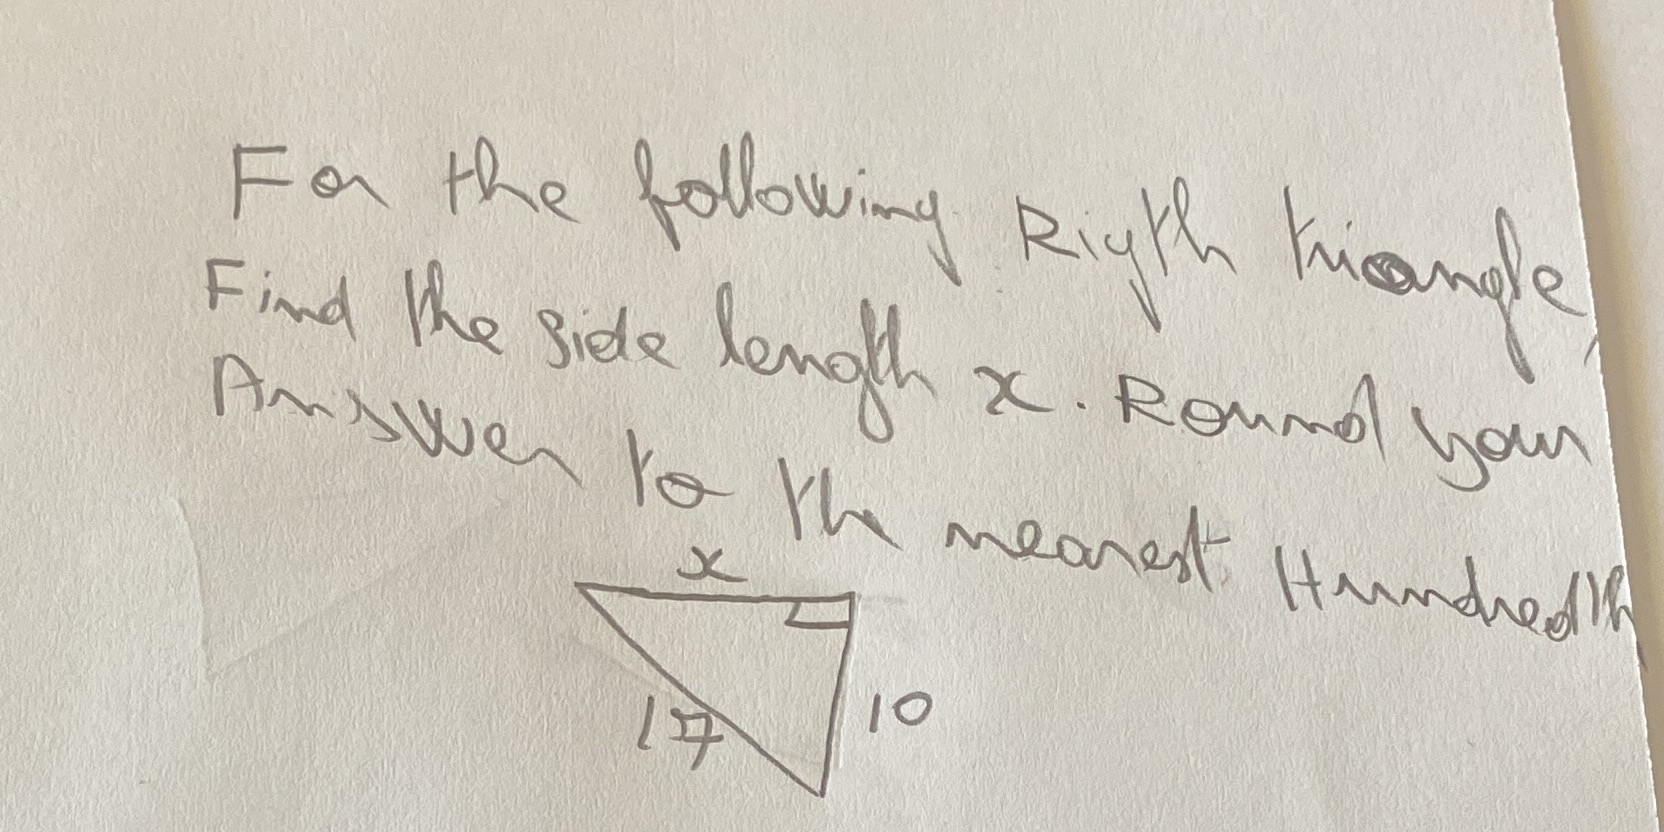 For the following Rigth triangle,
Find the side length x. Round your
Answer to the nearest Hundredth
x
17
10